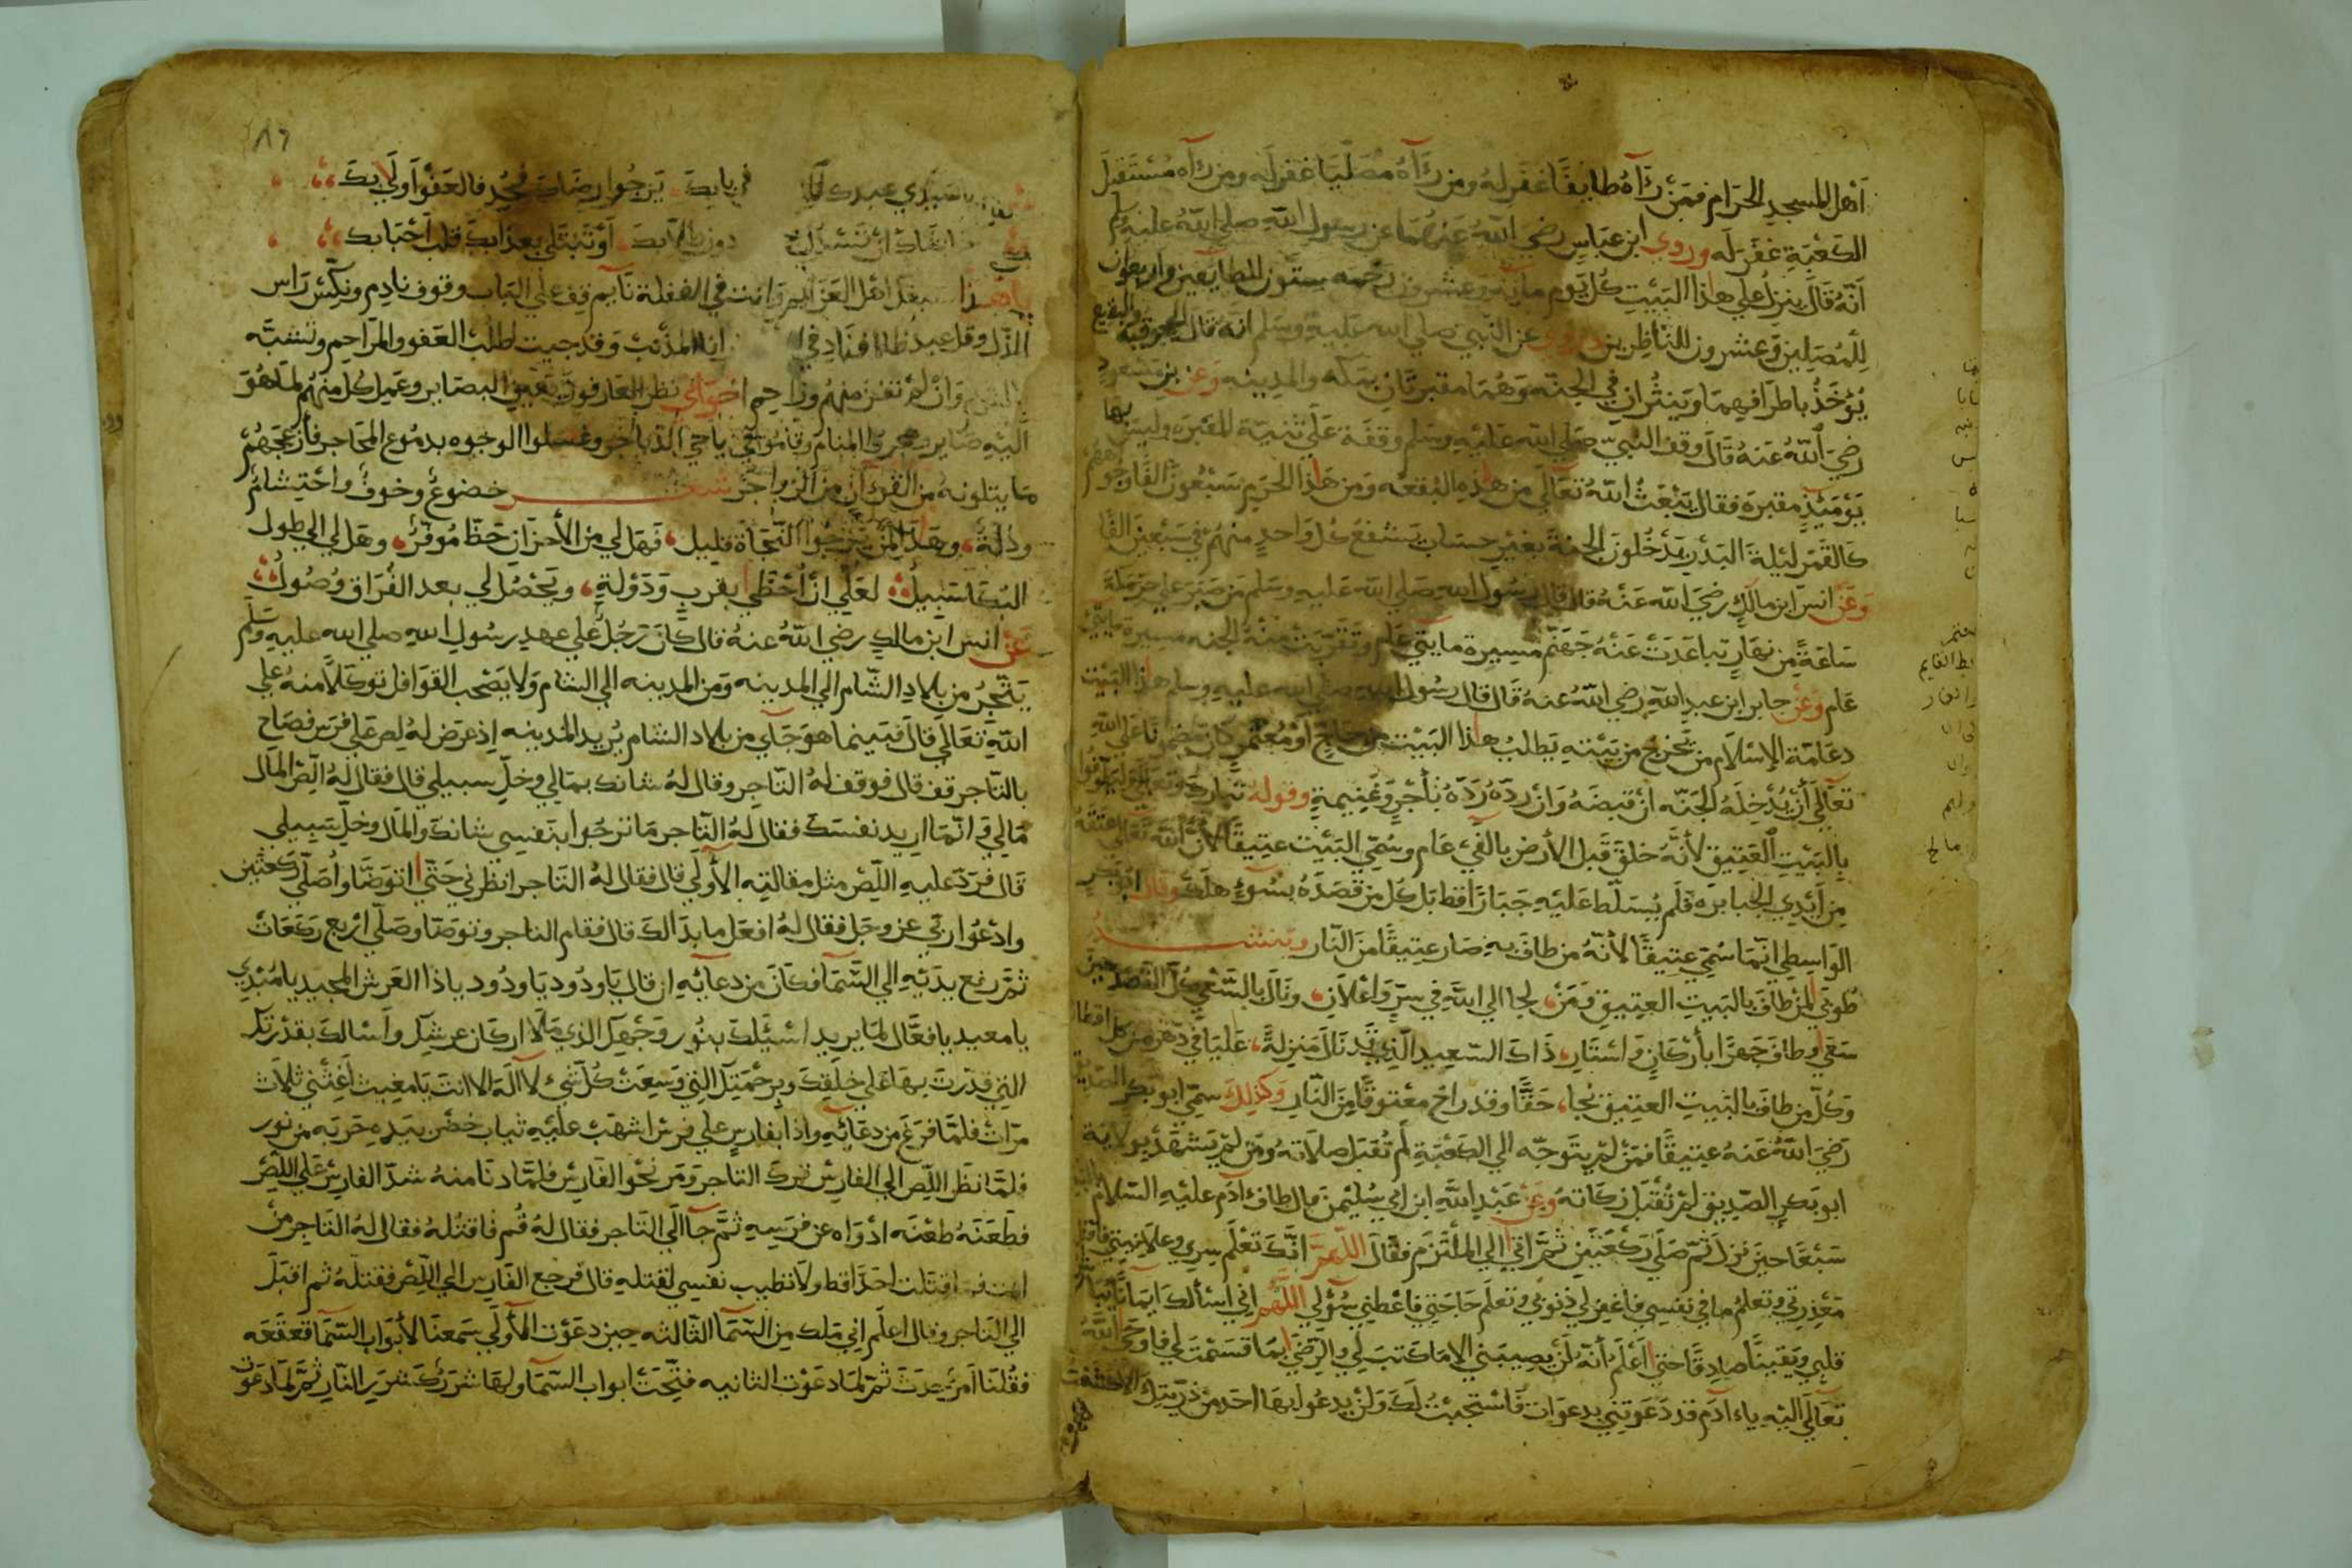 أهل المسجد الحرام فمن رآه طايفا غفر له ومن رآه مصليا غفر له ومن رآه مستقبل
الكعبة غفر له وروي ابن عباس رضي الله عنهما عن رسول الله صلي الله عليه وسلم
أنه قال ينزل علي هذا البيت كل يوم ماية وعشرون رحمه ستون للطايفين واربعون
للمصلين وعشرون للناظرين وروي عن النبي صلي الله عليه وسلم انه قال الحجون والبقيع
يؤخذ باطرافهما وينثران في الجنه وهما مقبرتان بمكه والمدينه وعن بن مسعود
رضي الله عنه قال وقف النبي صلي الله عليه وسلم وقفة علي ثنية المقبره وليس بها
يومئذ مقبرة فقال يبعث الله تعالي من هذه البقعه ومن هذا الحرم سبعون الفا وجوههم
كالقمر ليلة البدر يدخلون الجنة بغير حساب يشفع كل واحد منهم في سبعين الفا
وعن انس ابن مالك رضي الله عنه قال قال رسول الله صلي الله عليه وسلم من صبر علي حر مكة
ساعة من نهار تباعدت عنه جهنم مسيرة مايتي عام وتقربت منه الجنه مسيرة مايتي
عام وعن جابر ابن عبد الله رضي الله عنه قال قال رسول الله صلي الله عليه وسلم هذا البيت
دعامة الإسلام من تخرج من بيته يطلب هذا البيت من حاج أو معتمر كان مضمونا علي الله
تعالي أن يدخله الجنه ان قبضه وان رده رده بأجر وغنيمة وقوله تبارك وتعالي وليطوفوا
بالبيت العتيق لأنه خلق قبل الأرض بالفي عام وسمي البيت عتيقا لأن الله تعالي عتقه
من أيدي الجبابره فلم يسلط عليه جبارا قط بل كل من قصده بسوء هلك وقال ابو بكر
الواسطي انما سمي عتيقا لأنه من طاف به صار عتيقا من النار وينشد
طوبي لمن طاف بالبيت العتيق ومن، لجا الي الله في سر واعلان، ونال بالسعي كل القصد حين
سعي وطاف جهرا بأركان واستار، ذاك السعيد الذي قد نال منزلة، عليا في دهره من كل اقطا
وكل من طاف بالبيت العتيق نجا، حقا وقد راح معتوقا من النار وكذلك سمي ابو بكر الصديق
رضي الله عنه عتيقا فمن لم يتوجه الي الكعبة لم تقبل صلاته ومن لم يشهد بولاية
ابو بكر الصديق لم تقبل زكاته وعن عبد الله ابن ابي سليمن قال طاف آدم عليه السلام
سبعا حين نزل ثم صلي ركعتين ثم اتي الي الملتزم فقال اللهم انك تعلم سري وعلانيتي فاقبل
معذرتي وتعلم ما في نفسي فاغفر لي ذنوبي وتعلم حاجتي فاعطني سؤلي اللهم اني اسألك ايمانا يباشر
قلبي ويقينا صادقا حتي اعلم أنه لن يصيبني الا ما كتبت لي والرضي بما قسمت لي فاوحي الله
تعالي اليه ياء آدم قد دعوتني بدعوات فاستجبت لك ولن يدعوا بها احد من ذريتك الا كشفت
٨٦
سيدي عبدك في بابك يرجوا رضاك فجد فالعفو أولي بك
دون طلابك، أو تبتلي بعذابك قلب أحبابك
يا هذا سبقك اهل العزايم وانت في الغفلة نايم قف علي الباب وقوف نادم ونكس راس
الذل وقل عبد ظالم فناد في انا المذنب وقد جيت لطلب العفو والمراحم وتشبه
وان لم تكن منهم وزاحم اخواني نظر العارفون بعين البصاير وعمل كل منهم لما هو
اليه صاير هجروا المنام وقاموا في دياجي الدياجر وغسلوا الوجوه بدموع المحاجر فأزعجهم
ما يتلونه من القرآن من الزواجر شعر خضوع وخوف واحتشام
وذلة، وهذا لمن يرجوا النجاة قليل، فهل لي من الأحزان حظا موفر، وهل لي الي طول
البكا سبيل لعلي ان احظي بقرب ودولة، ويحصل لي بعد الفراق وصول
عن انس ابن مالك رضي الله عنه قال كان رجل علي عهد رسول الله صلي الله عليه وسلم
يتجر من بلاد الشام الي المدينه ومن المدينه الي الشام ولا يصحب القوافل توكلا منه علي
الله تعالي قال فبينما هو جآي من بلاد الشام يريد المدينه إذ عرض له لص علي فرس فصاح
بالتاجر قف قال فوقف له التاجر وقال له شانك بمالي وخل سبيلي قال فقال له اللص المال
مالي وانما اريد نفسك فقال له التاجر ما ترجوا بنفسي شانك والمال وخل سبيلي
قال فرد عليه اللص مثل مقالته الأولي قال فقال له التاجر انظرني حتي اتوضا واصلي ركعتين
وادعوا ربي عز وجل فقال له افعل ما بدالك قال فقام التاجر وتوضا وصلي اربع ركعات
ثم رفع يديه الي السما فكان من دعايه ان قال يا ودود يا ودود ياذا العرش المجيد يا مبدي
يا معيد يا فعال لما يريد اسئلك بنور وجهك الذي ملا اركان عرشك وأسالك بقدرتك
التي قدرت بها علي خلقك وبرحمتك التي وسعت كل شيء لا آله الا انت يا مغيث أغثني ثلاث
مرات فلما فرغ من دعايه واذا بفارس علي فرس اشهب عليه ثياب خضر بيده حربه من نور
فلما نظر اللص الي الفارس ترك التاجر ومر نحو الفارس فلما دنا منه شد الفارس علي اللص
فطعنه طعنه اذراه عن فرسه ثم جآ الي التاجر فقال له قم فاقتله فقال له التاجر من
انت فما اقتلت احدا قط ولا تطيب نفسي لقتله قال فرجع الفارس الي اللص فقتله ثم اقبل
الي التاجر وقال اعلم اني ملك من السما الثالثه حين دعوت الأولي سمعنا لأبواب السما قعقعه
فقلنا امر حدث ثم لما دعوت الثانيه فتحت ابواب السما ولها شرر كشرر النار ثم لما دعوت